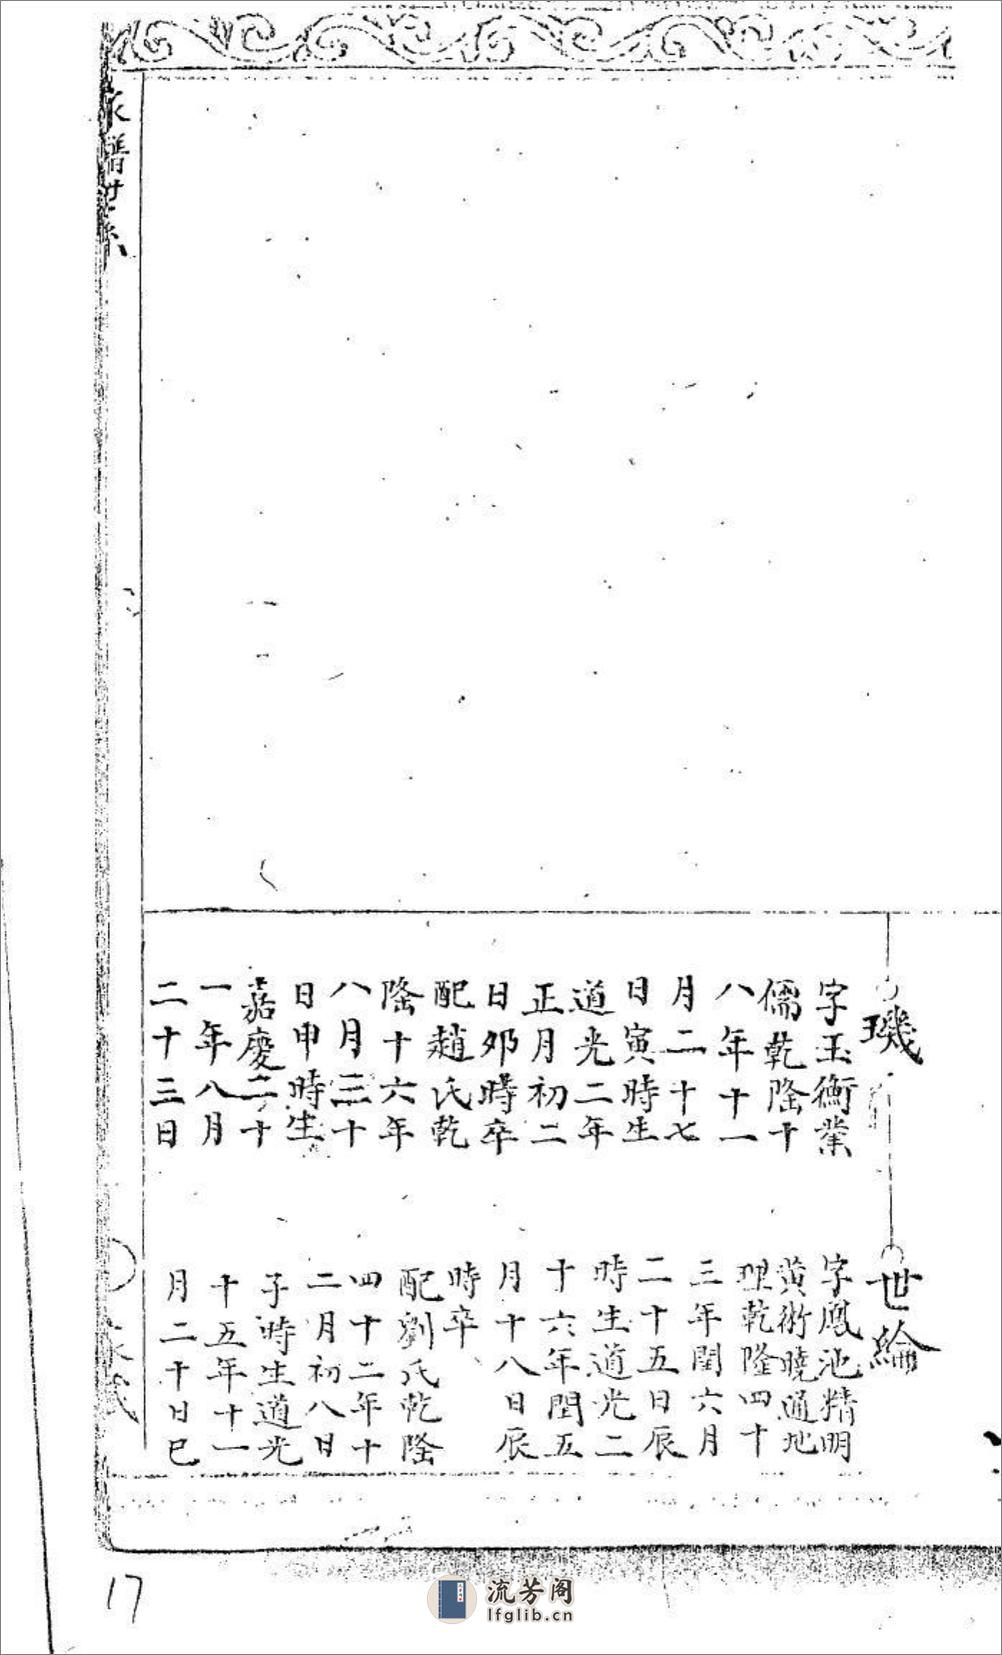 家譜世系
璣
字玉衡業
儒乾隆十
八年十一
月二十七
日寅時生
道光二年
正月初二
日夘時卒
配趙氏乾
隆十六年
八月三十
日申時生
嘉慶二十
一年八月
二十三日
世綸
字鳳池精明
黄術曉通地
理乾隆四十
三年閏六月
二十五日辰
時生道光二
十六年閏五
月十八日辰
時卒
配劉氏乾隆
四十二年十
二月初八日
子時生道光
十五年十一
月二十日巳
17
流芳阁
lfglib.cn